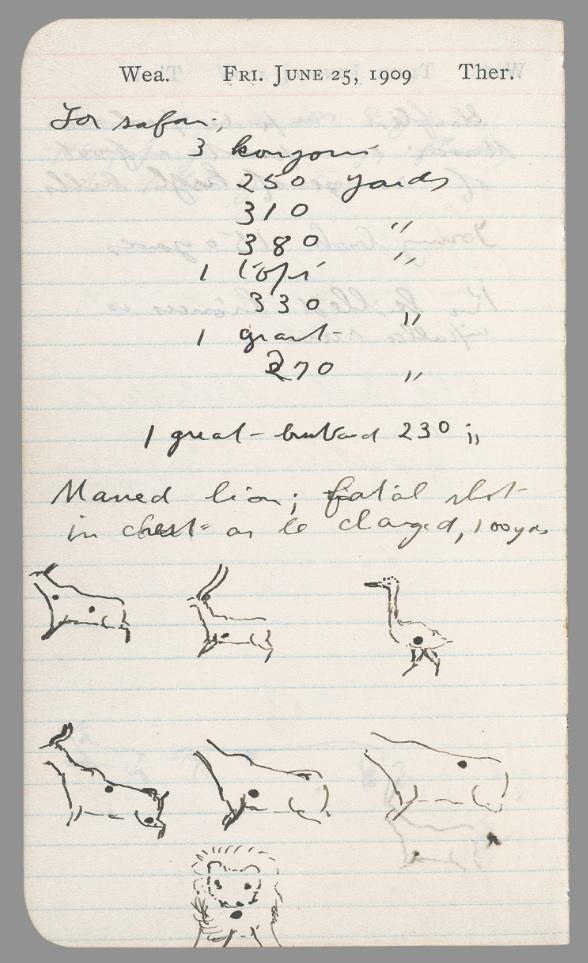 Wea. FRI. JUNE 25, 1909 Ther.
For safari;
3 kongoni
250 yards
310 "
380 "
1 topi
330 "
1 grant
270 "
1 great bustard 230 "
Maned lion; fatal shot
in chest as he charged, 100 yds